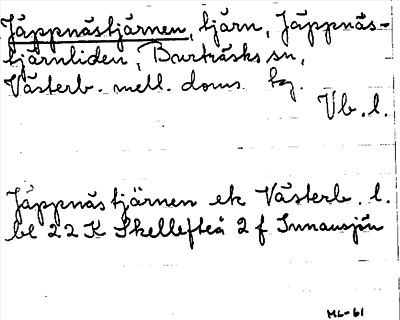 Jäppnästjärnen, tjärn, Jäppnäs-
tjärnliden, Burträsks sn,
Västerb. mell. doms. tg.
Vb. l.
Jäppnästjärnen ek Västerb. l.
bl 22 K Skellefteå 2 f Innansjön
ML-61